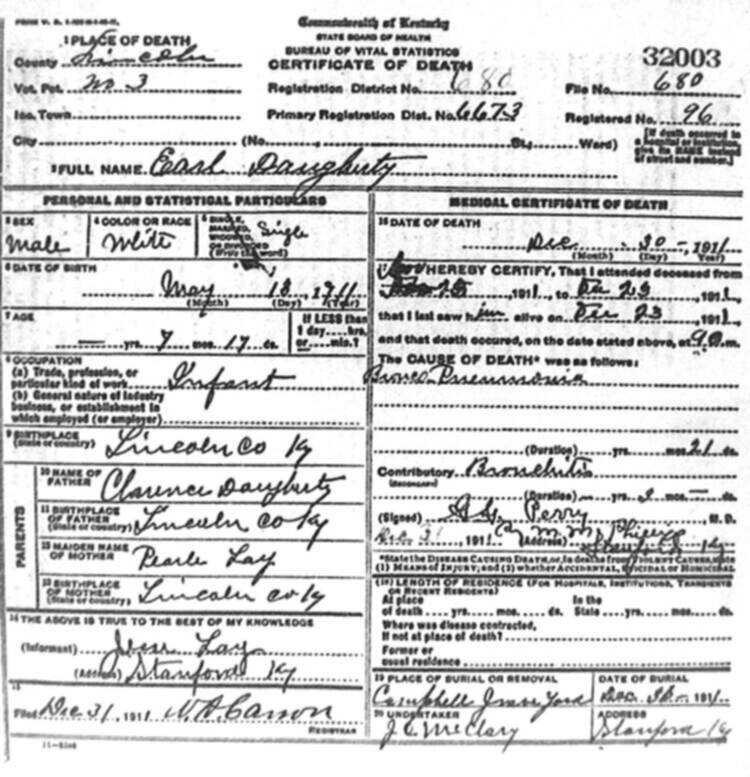 Commonwealth of Kentucky
STATE BOARD OF HEALTH
BUREAU OF VITAL STATISTICS
CERTIFICATE OF DEATH
32003
1 PLACE OF DEATH
County Lincoln
Vot. Pct. No 3
Inc. Town
City (No. St., Ward)
Registration District No. 680
Primary Registration Dist. No. 6673
File No. 680
Registered No. 96
[If death occurred in a hospital or institution, give its NAME instead of street and number.]
2 FULL NAME Earl Daugherty
PERSONAL AND STATISTICAL PARTICULARS
3 SEX
Male
4 COLOR OR RACE
White
5 SINGLE, MARRIED, WIDOWED, OR DIVORCED
(Write the word)
Single
6 DATE OF BIRTH
May 13, 1911
(Month) (Day) (Year)
7 AGE
— yrs. 7 mos. 17 ds.
If LESS than
1 day....hrs.
or....min.?
8 OCCUPATION
(a) Trade, profession, or
particular kind of work Infant
(b) General nature of industry
business, or establishment in
which employed (or employer)
9 BIRTHPLACE
(State or country) Lincoln Co Ky
PARENTS
10 NAME OF
FATHER Clarence Daugherty
11 BIRTHPLACE
OF FATHER
(State or country) Lincoln Co Ky
12 MAIDEN NAME
OF MOTHER Pearle Lay
13 BIRTHPLACE
OF MOTHER
(State or country) Lincoln Co Ky
14 THE ABOVE IS TRUE TO THE BEST OF MY KNOWLEDGE
(Informant) Jesse Lay
(Address) Stanford Ky
15
Filed Dec 31, 1911
REGISTRAR
MEDICAL CERTIFICATE OF DEATH
16 DATE OF DEATH
Dec. 30 - 1911
(Month) (Day) (Year)
17 I HEREBY CERTIFY, That I attended deceased from
1911, to Dec 23, 1911,
that I last saw him alive on Dec 23, 1911
and that death occured, on the date stated above, at 9 a.m.
The CAUSE OF DEATH* was as follows:
Bronco Pneumonia
(Duration) yrs. mos. 21 ds.
Contributory Bronchitis
(SECONDARY)
(Duration) yrs. mos. — ds.
(Signed) Perry M. D.
Dec. 31 191 (Address) Ky
*State the DISEASE CAUSING DEATH, or, in deaths from VIOLENT CAUSES, state
(1) MEANS OF INJURY; and (2) whether ACCIDENTAL, SUICIDAL or HOMICIDAL
(18) LENGTH OF RESIDENCE (FOR HOSPITALS, INSTITUTIONS, TRANSIENTS
OR RECENT RESIDENTS)
At place
of death yrs. mos. ds.
In the
State yrs. mos. ds.
Where was disease contracted,
If not at place of death?
Former or
usual residence
19 PLACE OF BURIAL OR REMOVAL
Campbell Grave Yard
DATE OF BURIAL
Dec. 1911
20 UNDERTAKER
J C McClary
ADDRESS
Stanford Ky